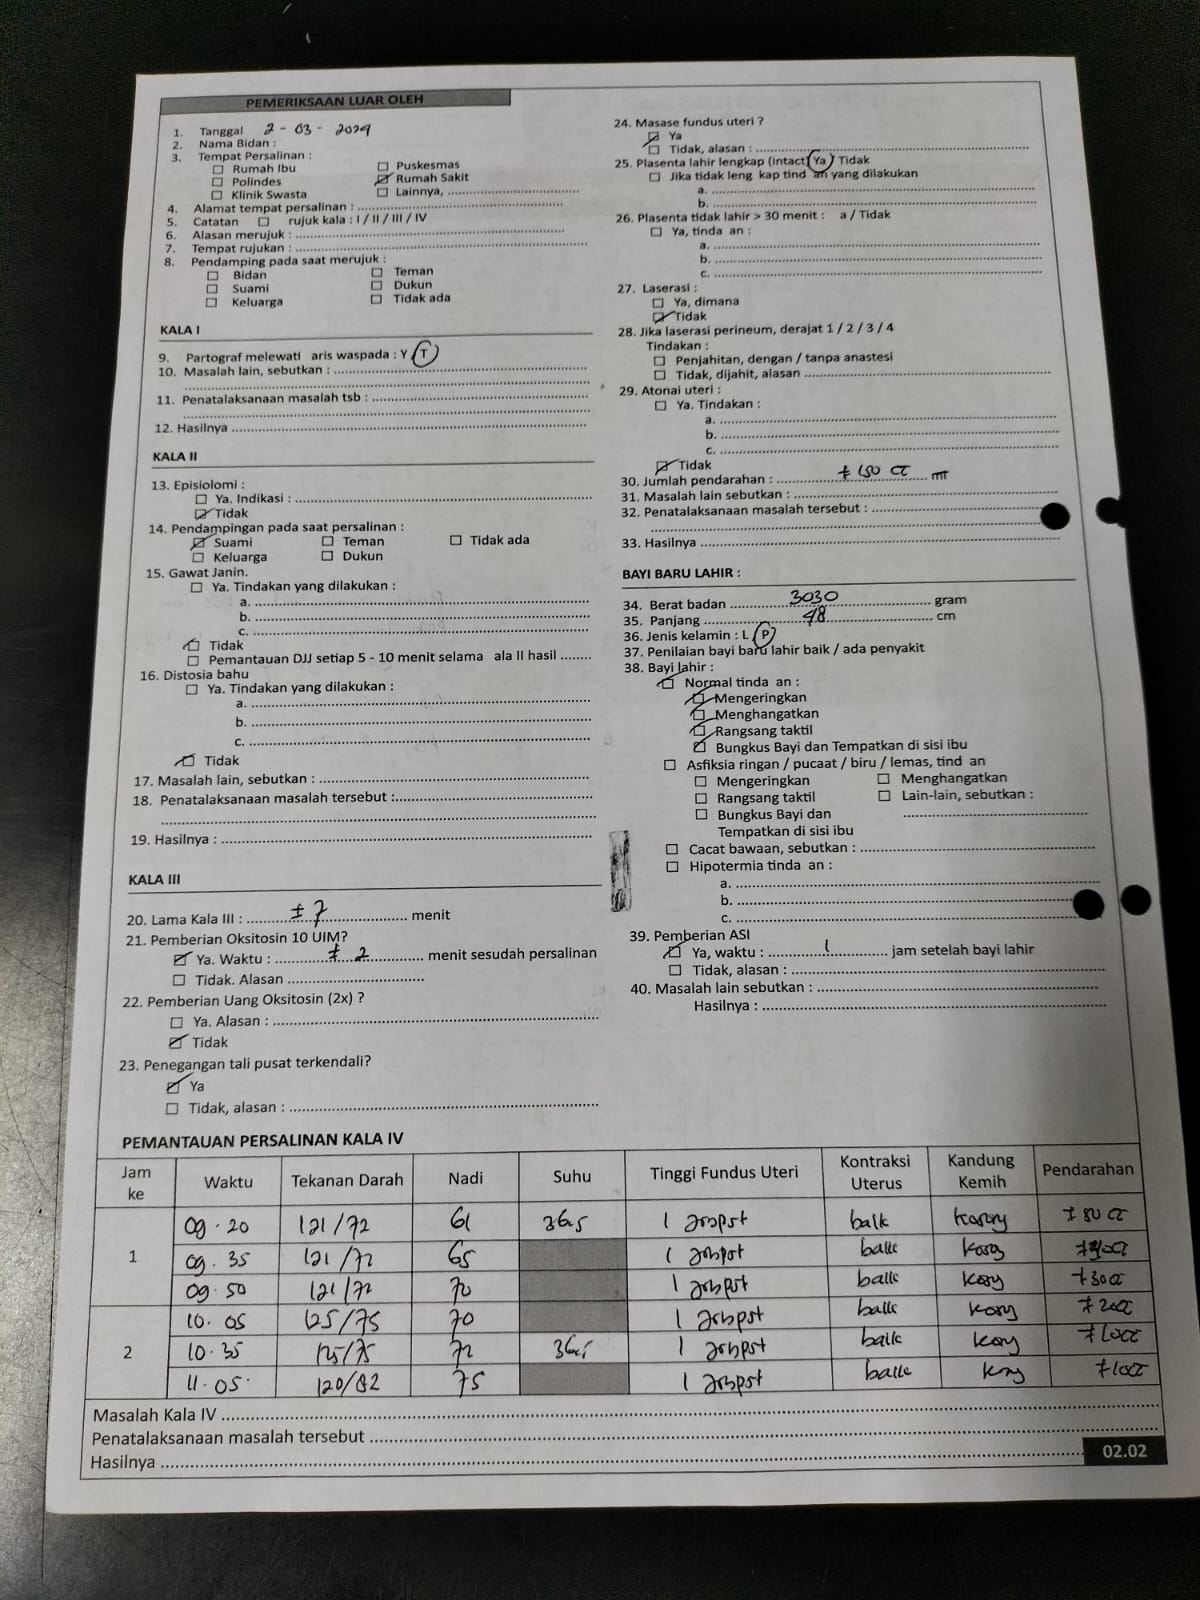 PEMERIKSAAN LUAR OLEH
1. Tanggal 2 - 03 - 2029
2. Nama Bidan :
3. Tempat Persalinan :
Rumah Ibu
Puskesmas
Polindes
Rumah Sakit
Klinik Swasta
Lainnya,
4. Alamat tempat persalinan :
5. Catatan rujuk kala : I / II / III / IV
6. Alasan merujuk :
7. Tempat rujukan :
8. Pendamping pada saat merujuk :
Bidan
Teman
Suami
Dukun
Keluarga
Tidak ada
KALA I
9. Partograf melewati aris waspada : Y / T
10. Masalah lain, sebutkan :
11. Penatalaksanaan masalah tsb :
12. Hasilnya
KALA II
13. Episiolomi :
Ya. Indikasi :
Tidak
14. Pendampingan pada saat persalinan :
Suami
Teman
Tidak ada
Keluarga
Dukun
15. Gawat Janin.
Ya. Tindakan yang dilakukan :
a.
b.
c.
Tidak
Pemantauan DJJ setiap 5 - 10 menit selama ala II hasil
16. Distosia bahu
Ya. Tindakan yang dilakukan :
a.
b.
c.
Tidak
17. Masalah lain, sebutkan :
18. Penatalaksanaan masalah tersebut :
19. Hasilnya :
KALA III
20. Lama Kala III : ± 7 menit
21. Pemberian Oksitosin 10 UIM?
Ya. Waktu : ± 2 menit sesudah persalinan
Tidak. Alasan
22. Pemberian Uang Oksitosin (2x) ?
Ya. Alasan :
Tidak
23. Penegangan tali pusat terkendali?
Ya
Tidak, alasan :
24. Masase fundus uteri ?
Ya
Tidak, alasan :
25. Plasenta lahir lengkap (Intact) Ya / Tidak
Jika tidak leng kap tind an yang dilakukan
a.
b.
26. Plasenta tidak lahir > 30 menit : a / Tidak
Ya, tinda an :
a.
b.
c.
27. Laserasi :
Ya, dimana
Tidak
28. Jika laserasi perineum, derajat 1 / 2 / 3 / 4
Tindakan :
Penjahitan, dengan / tanpa anastesi
Tidak, dijahit, alasan
29. Atonai uteri :
Ya. Tindakan :
a.
b.
c.
Tidak
30. Jumlah pendarahan : ± 150 cc mt
31. Masalah lain sebutkan :
32. Penatalaksanaan masalah tersebut :
33. Hasilnya
BAYI BARU LAHIR :
34. Berat badan 3030 gram
35. Panjang 48 cm
36. Jenis kelamin : L / P
37. Penilaian bayi baru lahir baik / ada penyakit
38. Bayi lahir :
Normal tinda an :
Mengeringkan
Menghangatkan
Rangsang taktil
Bungkus Bayi dan Tempatkan di sisi ibu
Asfiksia ringan / pucaat / biru / lemas, tind an
Mengeringkan
Menghangatkan
Rangsang taktil
Lain-lain, sebutkan :
Bungkus Bayi dan
Tempatkan di sisi ibu
Cacat bawaan, sebutkan :
Hipotermia tinda an :
a.
b.
c.
39. Pemberian ASI
Ya, waktu : 1 jam setelah bayi lahir
Tidak, alasan :
40. Masalah lain sebutkan :
Hasilnya :
PEMANTAUAN PERSALINAN KALA IV
Jam ke Waktu Tekanan Darah Nadi Suhu Tinggi Fundus Uteri Kontraksi Uterus Kandung Kemih Pendarahan
1 09.20 121/72 61 36,5 1 jrbpst baik kosong ± 50 cc
09.35 121/72 65 1 jrbpst baik kosong
09.50 121/72 70 1 jrbpst baik kosong ± 30 cc
2 10.05 125/75 70 1 jrbpst baik kosong ± 20cc
10.35 125/75 72 1 jrbpst baik kosong ± 10cc
11.05 120/82 75 1 jrbpst baik ± 10cc
Masalah Kala IV
Penatalaksanaan masalah tersebut
Hasilnya
02.02